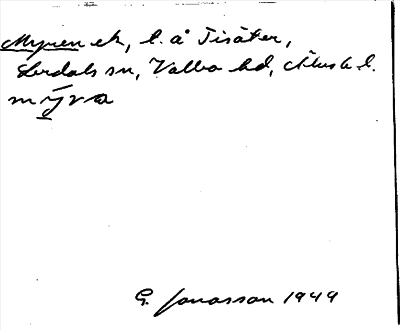 Myren ek, l. å Tisäter,
Lerdals sn, Valbo hd, Älvsb l.
mýra
G. Jonasson 1949